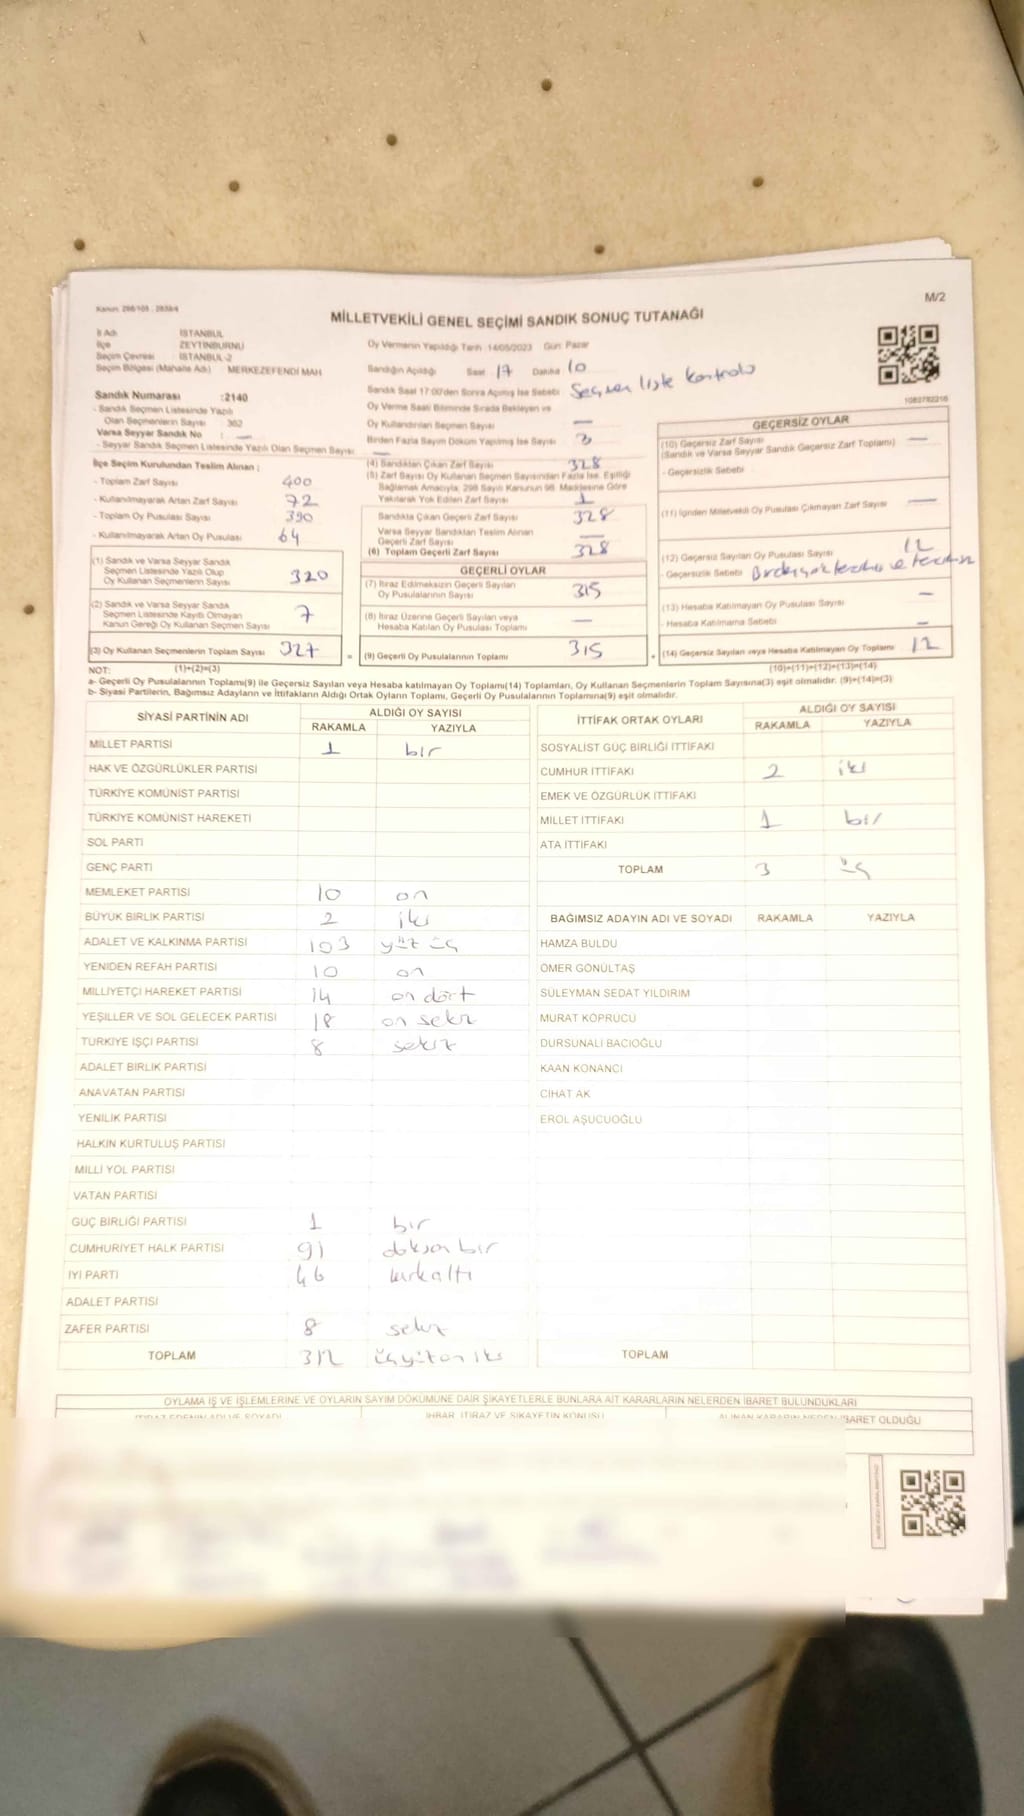 Kanun: 298/105 - 2839/4
M/2
MİLLETVEKİLİ GENEL SEÇİMİ SANDIK SONUÇ TUTANAĞI
İl Adı İSTANBUL
İlçe ZEYTİNBURNU
Seçim Çevresi : İSTANBUL-2
Seçim Bölgesi (Mahalle Adı) : MERKEZEFENDİ MAH.
Sandık Numarası :2140
- Sandık Seçmen Listesinde Yazılı
Olan Seçmenlerin Sayısı : 362
Varsa Seyyar Sandık No : —
- Seyyar Sandık Seçmen Listesinde Yazılı Olan Seçmen Sayısı : —
İlçe Seçim Kurulundan Teslim Alınan ;
- Toplam Zarf Sayısı 400
- Kullanılmayarak Artan Zarf Sayısı 72
- Toplam Oy Pusulası Sayısı 390
- Kullanılmayarak Artan Oy Pusulası 64
(1) Sandık ve Varsa Seyyar Sandık
Seçmen Listesinde Yazılı Olup
Oy Kullanan Seçmenlerin Sayısı 320
(2) Sandık ve Varsa Seyyar Sandık
Seçmen Listesinde Kayıtlı Olmayan
Kanun Gereği Oy Kullanan Seçmen Sayısı 7
(3) Oy Kullanan Seçmenlerin Toplam Sayısı 327 =
Oy Vermenin Yapıldığı Tarih :14/05/2023 Gün: Pazar
Sandığın Açıldığı Saat 17 Dakika 10
Sandık Saat 17:00'den Sonra Açılmış İse Sebebi : Seçmen liste kontrolü
Oy Verme Saati Bitiminde Sırada Bekleyen ve
Oy Kullandırılan Seçmen Sayısı —
Birden Fazla Sayım Döküm Yapılmış İse Sayısı 3
(4) Sandıktan Çıkan Zarf Sayısı 328
(5) Zarf Sayısı Oy Kullanan Seçmen Sayısından Fazla İse, Eşitliği
Sağlamak Amacıyla; 298 Sayılı Kanunun 98. Maddesine Göre
Yakılarak Yok Edilen Zarf Sayısı 1
Sandıkta Çıkan Geçerli Zarf Sayısı 328
Varsa Seyyar Sandıktan Teslim Alınan
Geçerli Zarf Sayısı —
(6) Toplam Geçerli Zarf Sayısı 328
GEÇERLİ OYLAR
(7) İtiraz Edilmeksizin Geçerli Sayılan
Oy Pusulalarının Sayısı 315
(8) İtiraz Üzerine Geçerli Sayılan veya
Hesaba Katılan Oy Pusulası Toplamı —
(9) Geçerli Oy Pusulalarının Toplamı 315 +
1082782216
GEÇERSİZ OYLAR
(10) Geçersiz Zarf Sayısı —
(Sandık ve Varsa Seyyar Sandık Geçersiz Zarf Toplamı)
- Geçersizlik Sebebi :
(11) İçinden Milletvekili Oy Pusulası Çıkmayan Zarf Sayısı —
(12) Geçersiz Sayılan Oy Pusulası Sayısı 12
- Geçersizlik Sebebi
(13) Hesaba Katılmayan Oy Pusulası Sayısı —
- Hesaba Katılmama Sebebi —
(14) Geçersiz Sayılan veya Hesaba Katılmayan Oy Toplamı 12
NOT: (1)+(2)=(3) (10)+(11)+(12)+(13)=(14)
a- Geçerli Oy Pusulalarının Toplamı(9) ile Geçersiz Sayılan veya Hesaba katılmayan Oy Toplamı(14) Toplamları, Oy Kullanan Seçmenlerin Toplam Sayısına(3) eşit olmalıdır. (9)+(14)=(3)
b- Siyasi Partilerin, Bağımsız Adayların ve İttifakların Aldığı Ortak Oyların Toplamı, Geçerli Oy Pusulalarının Toplamına(9) eşit olmalıdır.
SİYASİ PARTİNİN ADI ALDIĞI OY SAYISI
RAKAMLA YAZIYLA
MİLLET PARTİSİ 1 bir
HAK VE ÖZGÜRLÜKLER PARTİSİ
TÜRKİYE KOMÜNİST PARTİSİ
TÜRKİYE KOMÜNİST HAREKETİ
SOL PARTİ
GENÇ PARTİ
MEMLEKET PARTİSİ 10 on
BÜYÜK BİRLİK PARTİSİ 2 iki
ADALET VE KALKINMA PARTİSİ 103 yüz üç
YENİDEN REFAH PARTİSİ 10 on
MİLLİYETÇİ HAREKET PARTİSİ 14 on dört
YEŞİLLER VE SOL GELECEK PARTİSİ 18 on sekiz
TÜRKİYE İŞÇİ PARTİSİ 8 sekiz
ADALET BİRLİK PARTİSİ
ANAVATAN PARTİSİ
YENİLİK PARTİSİ
HALKIN KURTULUŞ PARTİSİ
MİLLİ YOL PARTİSİ
VATAN PARTİSİ
GÜÇ BİRLİĞİ PARTİSİ 1 bir
CUMHURİYET HALK PARTİSİ 91 doksan bir
İYİ PARTİ 46 kırkaltı
ADALET PARTİSİ
ZAFER PARTİSİ 8 sekiz
TOPLAM 312 üçyüzoniki
İTTİFAK ORTAK OYLARI ALDIĞI OY SAYISI
RAKAMLA YAZIYLA
SOSYALİST GÜÇ BİRLİĞİ İTTİFAKI
CUMHUR İTTİFAKI 2 iki
EMEK VE ÖZGÜRLÜK İTTİFAKI
MİLLET İTTİFAKI 1 bir
ATA İTTİFAKI
TOPLAM 3 üç
BAĞIMSIZ ADAYIN ADI VE SOYADI RAKAMLA YAZIYLA
HAMZA BULDU
ÖMER GÖNÜLTAŞ
SÜLEYMAN SEDAT YILDIRIM
MURAT KÖPRÜCÜ
DURSUNALİ BACIOĞLU
KAAN KONANCI
CİHAT AK
EROL AŞUCUOĞLU
TOPLAM
OYLAMA İŞ VE İŞLEMLERİNE VE OYLARIN SAYIM DÖKÜMÜNE DAİR ŞİKAYETLERLE BUNLARA AİT KARARLARIN NELERDEN İBARET BULUNDUKLARI
İTİRAZ EDENİN ADI VE SOYADI İHBAR, İTİRAZ VE ŞİKAYETİN KONUSU ALINAN KARARIN NEDEN İBARET OLDUĞU